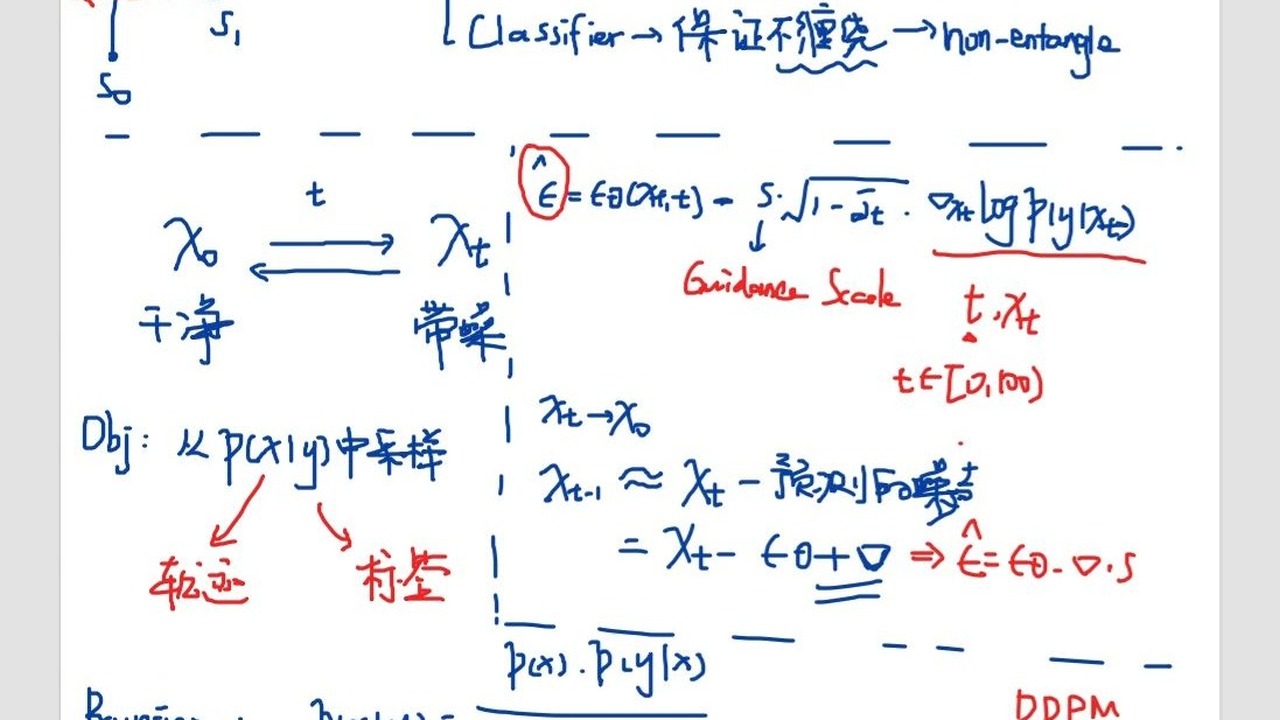 S₁
Classifier → 保证不缠绕 → non-entangle
S₀
t
x₀ ⇌ x_t
干净 带噪
Obj: 从 p(x|y) 中采样
轨迹 标签
ε̂ = εθ(x_t,t) - s·√(1-ᾱ_t) · ∇x_t log p(y|x_t)
Guidance Scale
t, x_t
t∈[0,100)
x_t → x₀
x_{t-1} ≈ x_t - 预测的噪声
= x_t - εθ + ∇ ⇒ ε̂ = εθ - ∇·s
p(x)·p(y|x)
DDPM